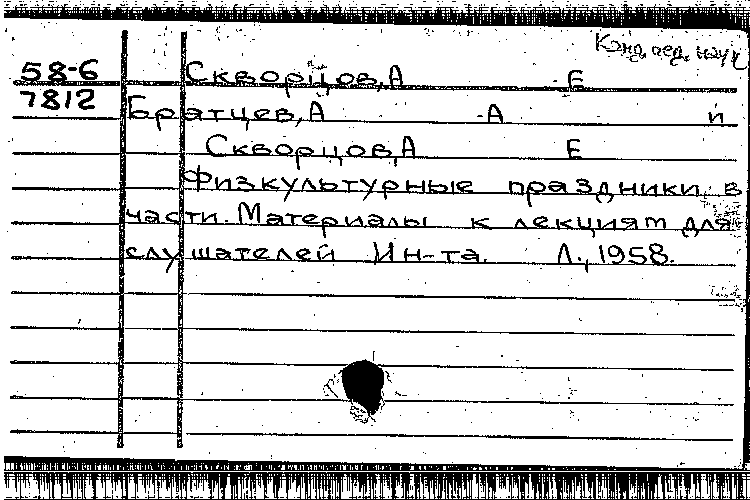 Канд. пед. наук
58-6 Скворцов, А Е
7812 Братцев, А А и
Скворцов, А Е
Физкультурные праздники в
части. Материалы к лекциям для
слушателей Ин-та. Л., 1958.